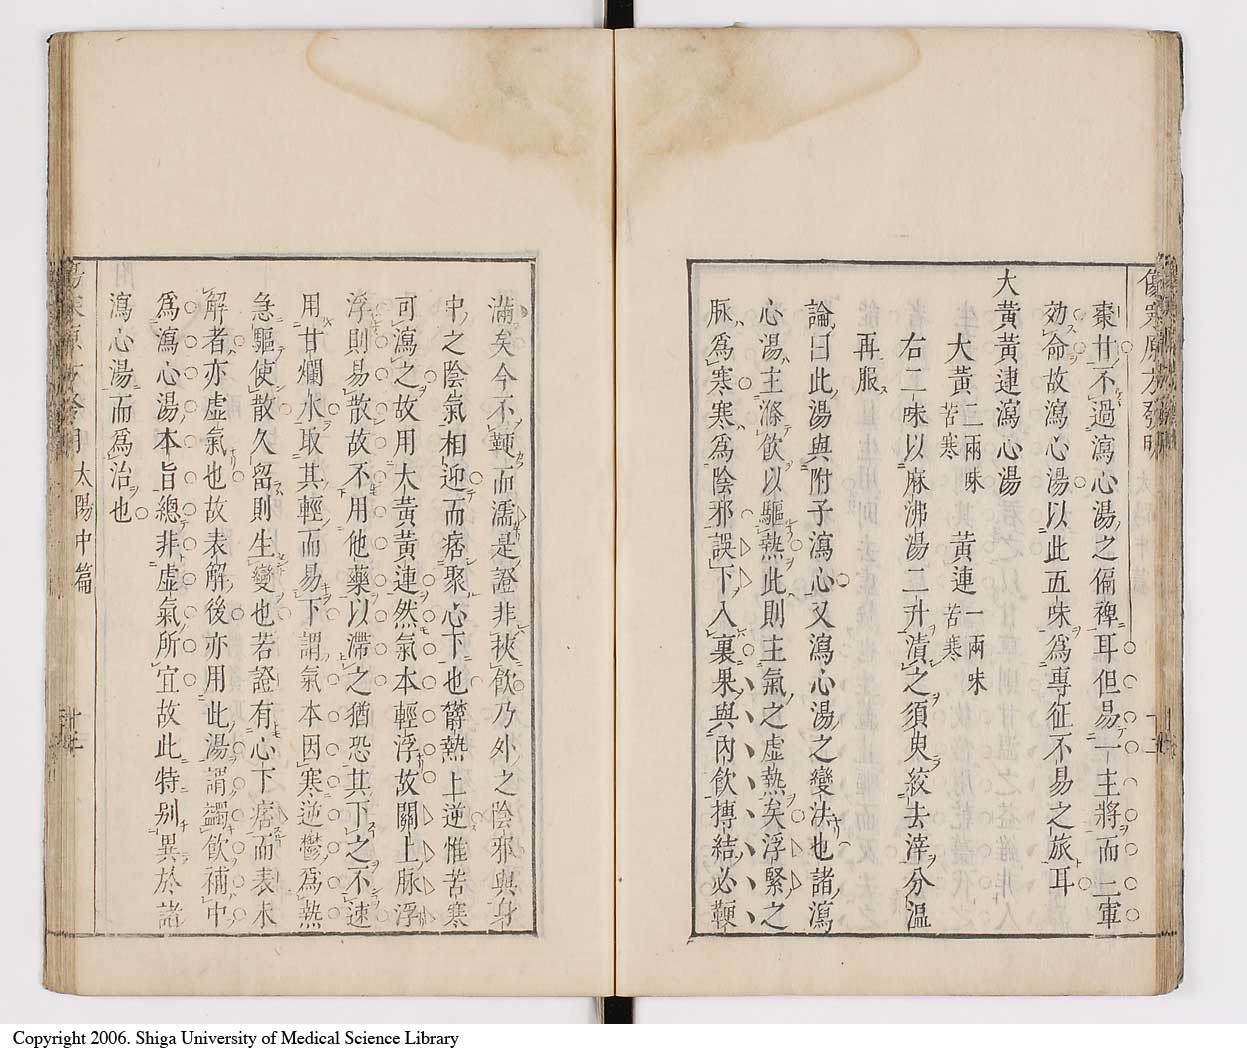 棗甘不過瀉心湯之偏裨耳但易一主將而二軍
効命故瀉心湯以此五味爲專征不易之旅耳
大黃黃連瀉心湯
大黃二兩味苦寒 黃連一兩味苦寒
右二味以麻沸湯二升漬之須臾絞去滓分溫
再服
論曰此湯與附子瀉心又瀉心湯之變法也諸瀉
心湯主滌飲以驅熱此則主氣之虛熱矣浮緊之
脉爲寒寒爲陰邪誤下入裏果與內飲摶結必鞕
滿矣今不鞕而濡是證非挾飲乃外之陰邪與身
中之陰氣相迎而痞聚心下也欝熱上逆惟苦寒
可瀉之故用大黃黃連然氣本輕浮故關上脉浮
浮則易散故不用他藥以滯之猶恐其下之不速
用甘爛水取其輕而易下謂氣本因寒逆鬱爲熱
急驅使散久留則生變也若證有心下痞而表未
解者亦虛氣也故表解後亦用此湯謂蠲飲補中
爲瀉心湯本旨總非虛氣所宜故此特别異於諸
瀉心湯而爲治也
太陽中篇
Copyright 2006. Shiga University of Medical Science Library